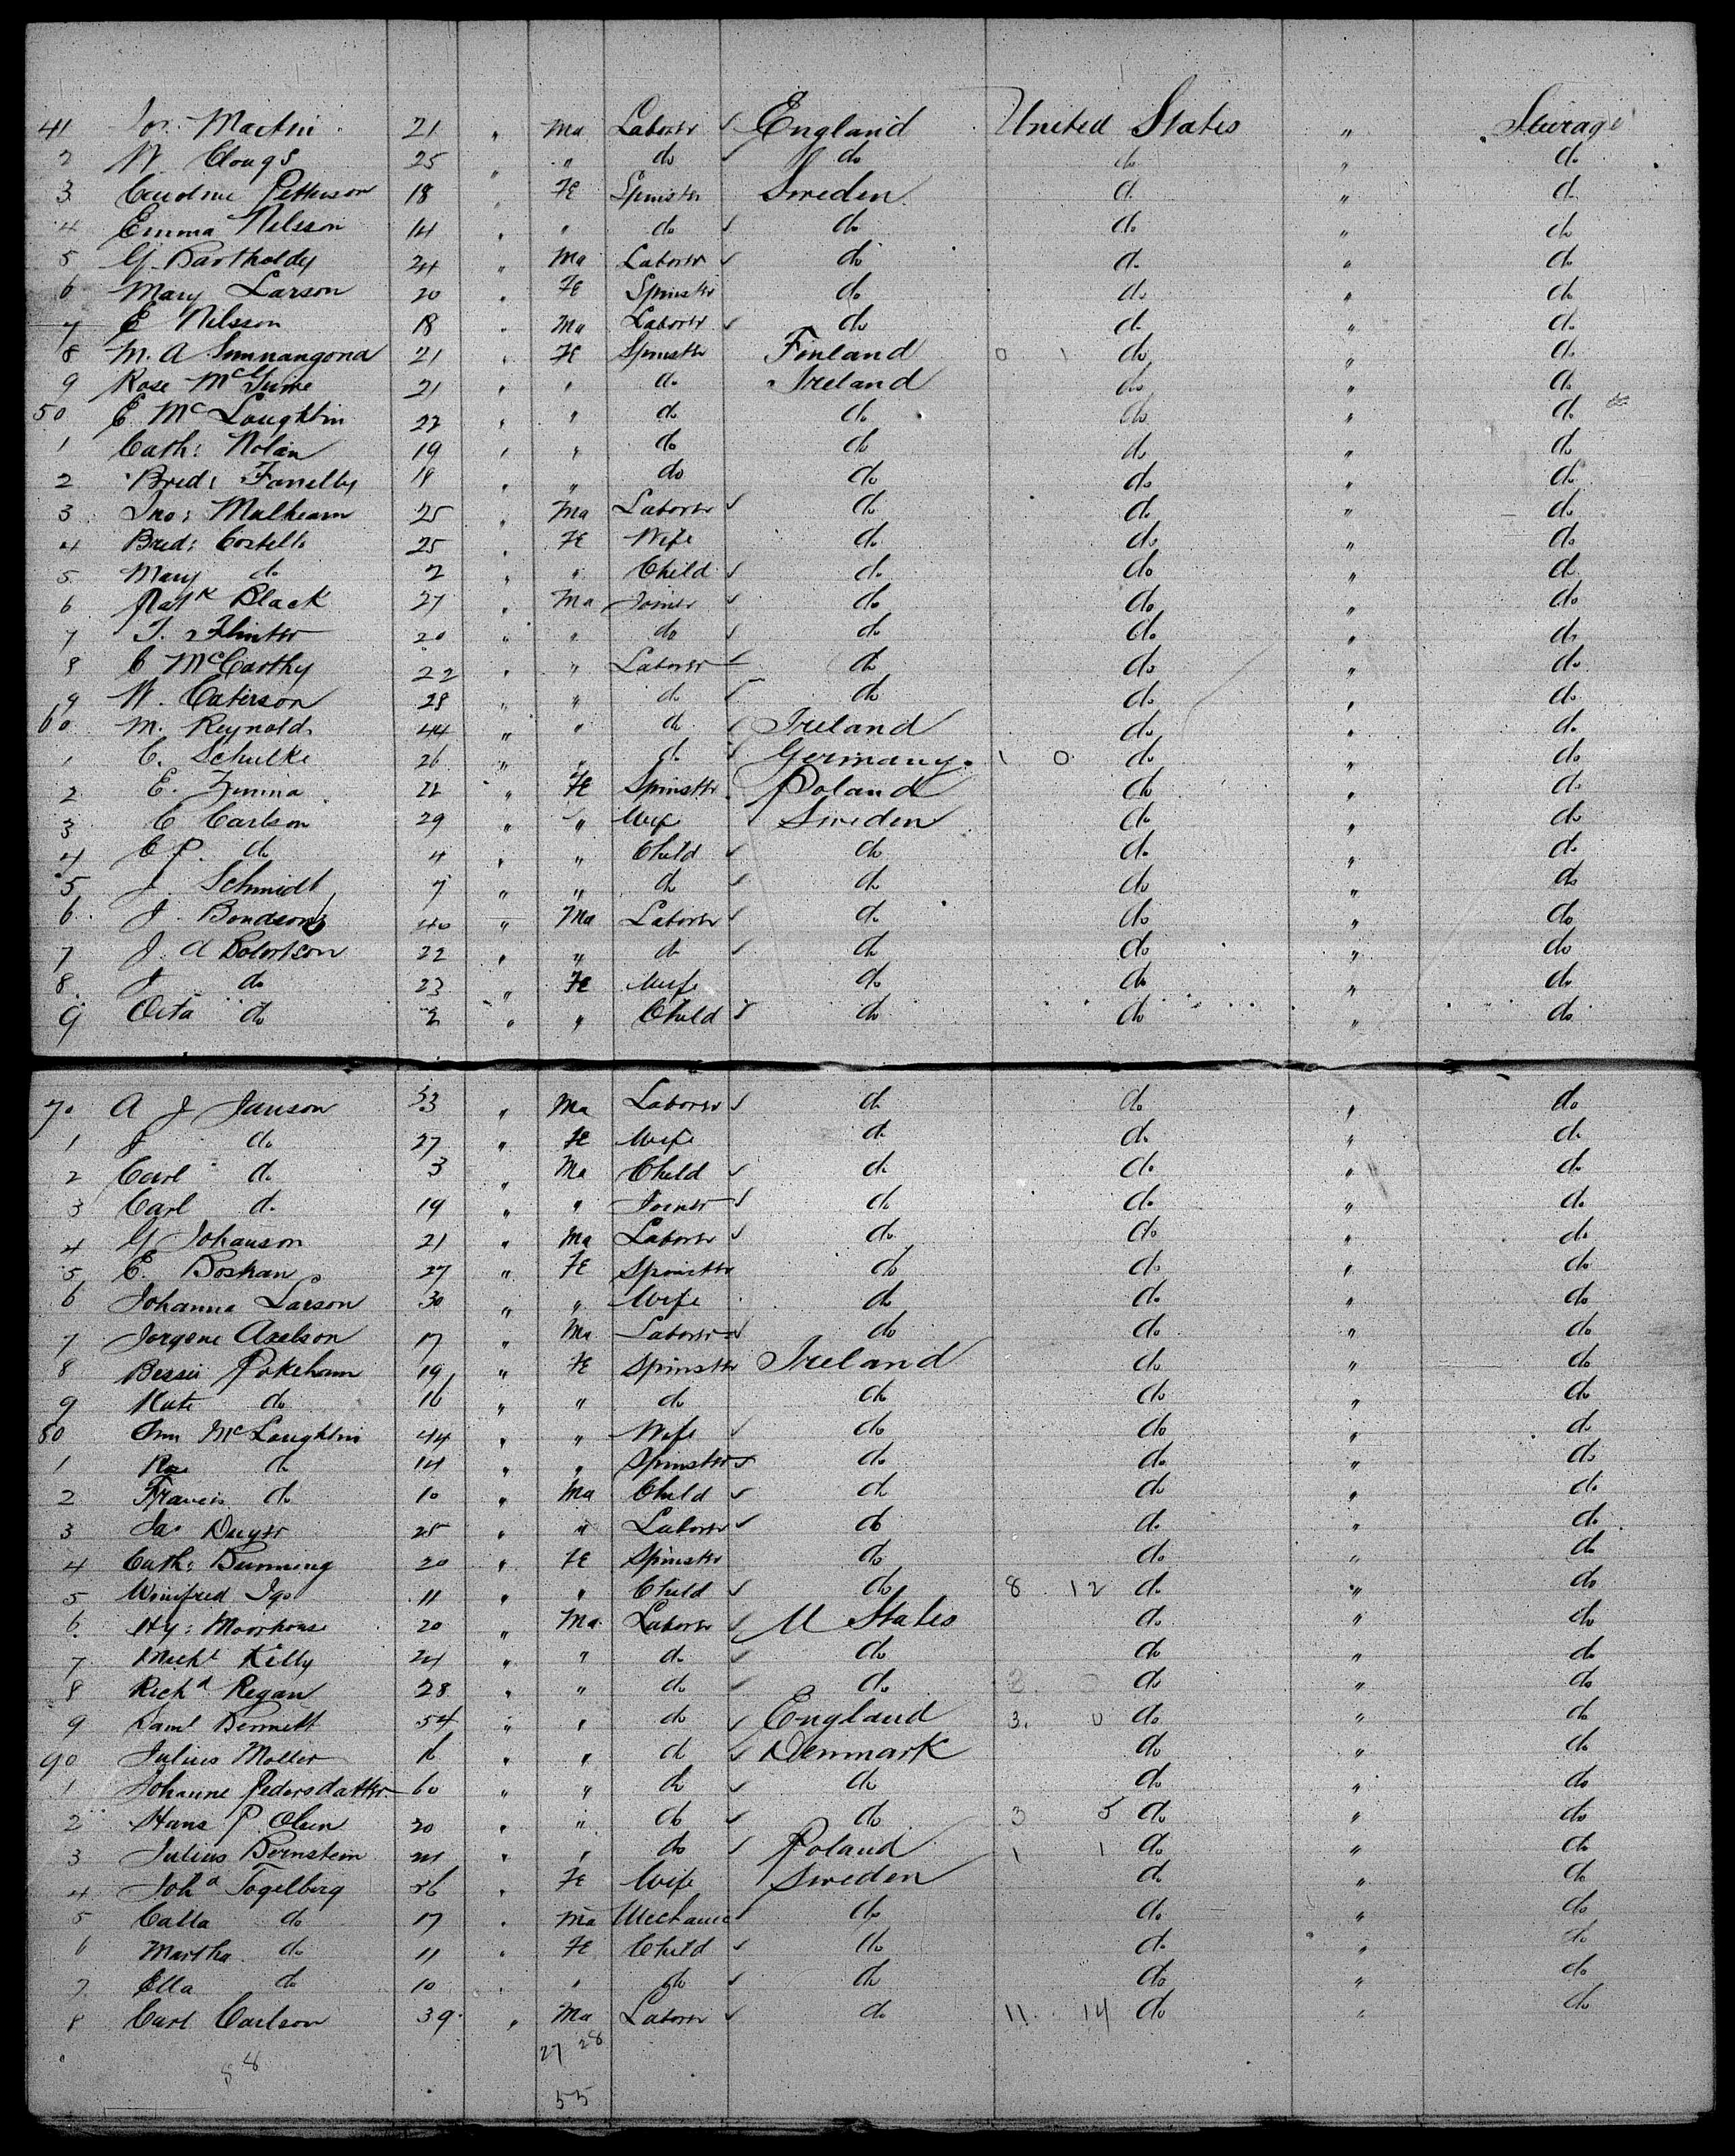 41 Jos. Martin 21 " Ma Laborer England United States " Steerage
2 W. Clougs 25 " " do do do " do
3 Caroline Petterson 18 " Fe Spinster Sweden do " do
4 Emma Nilsson 14 " " do do do " do
5 G Bartholdy 24 " Ma Laborer do do " do
6 Mary Larson 20 " Fe Spinster do do " do
7 E Nilsson 18 " Ma Laborer do do " do
8 M. A. 21 " Fe Spinster Finland 0 1 do " do
9 Rose McGuire 21 " " do Ireland do " do
50 E McLaughlin 22 " " do do do " do
1 Cath: Nolan 19 " " do do do " do
2 Brid: 18 " " do do do " do
3 Jno: Mulhearn 25 " Ma Laborer do do " do
4 Brid: Costello 25 " Fe Wife do do " do
5 Mary do 2 " " Child do do " do
6 Patk Black 27 " Ma Joiner do do " do
7 T. Flinter 20 " " do do do " do
8 C McCarthy 22 " " Laborer do do " do
9 W. Caterson 28 " " do do do " do
60 M. Reynolds 44 " " do Ireland do " do
1 C. Schulke 26 " " do Germany 1 0 do " do
2 E. 22 " Fe Spinster Poland do " do
3 C Carlson 29 " " Wife Sweden do " do
4 C P. do 4 " " Child do do " do
5 J Schmidt 7 " " do do do " do
6 J. Bondeson 40 " Ma Laborer do do " do
7 J. A Robertson 22 " " do do do " do
8 J do 23 " Fe Wife do do " do
9 do 2 " " Child do do " do
70 A J Janson 33 " Ma Laborer do do " do
1 J do 27 " Fe Wife do do " do
2 Carl do 3 " Ma Child do do " do
3 Carl do 19 " " Joiner do do " do
4 G Johanson 21 " Ma Laborer do do " do
5 E. Boskan 27 " Fe Spinster do do " do
6 Johanna Larson 30 " " Wife do do " do
7 Jorgene Axelson 17 " Ma Laborer do do " do
8 Bessie Pokeham 19 " Fe Spinster Ireland do " do
9 Kate do 16 " " do do do " do
80 Ann McLaughlin 44 " " Wife do do " do
1 Rose do 14 " " Spinster do do " do
2 Francis do 10 " Ma Child do do " do
3 Jas Dwyer 25 " " Laborer do do " do
4 Cath: Bunning 20 " Fe Spinster do do " do
5 Winifred Igo 11 " " Child do 8 12 do " do
6 Hy: Moorhouse 20 " Ma Laborer U States do " do
7 Michl Kelly 24 " " do do do " do
8 Richd Regan 28 " " do do 2 0 do " do
9 Saml Bennett 54 " " do England 3. 0 do " do
90 Julius Moller 16 " " do Denmark do " do
1 Johanne Pedersdatter 60 " " do do do " do
2 Hans P. Olsen 20 " " do do 3 5 do " do
3 Julius Bernstein 24 " " do Poland 1 1 do " do
4 Joha Fogelberg 36 " Fe Wife Sweden do " do
5 Calla do 17 " Ma Mechanic do do " do
6 Martha do 11 " Fe Child do do " do
7 Ella do 10 " " do do do " do
8 Carl Carlson 39 " Ma Laborer do 11. 14 do " do
27 28
58
55